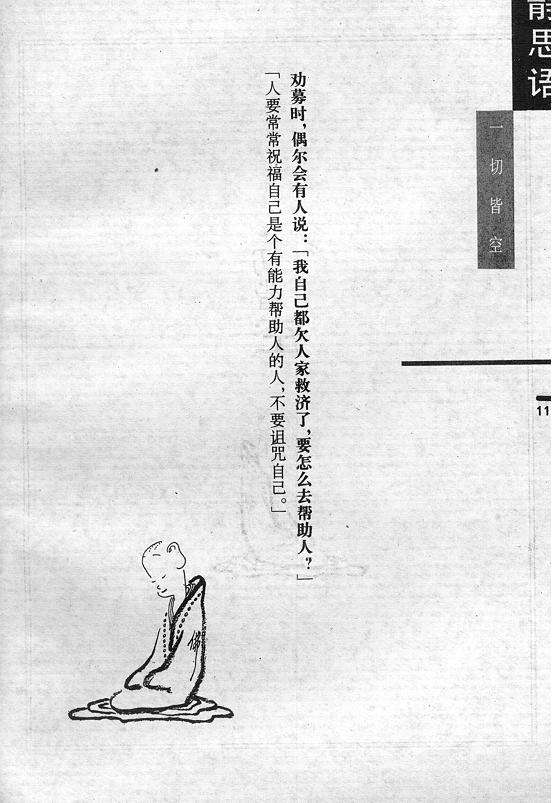 静思语
一切皆空
劝募时，偶尔会有人说：「我自己都欠人家救济了，要怎么去帮助人？」
「人要常常祝福自己是个有能力帮助人的人，不要诅咒自己。」
11
佛